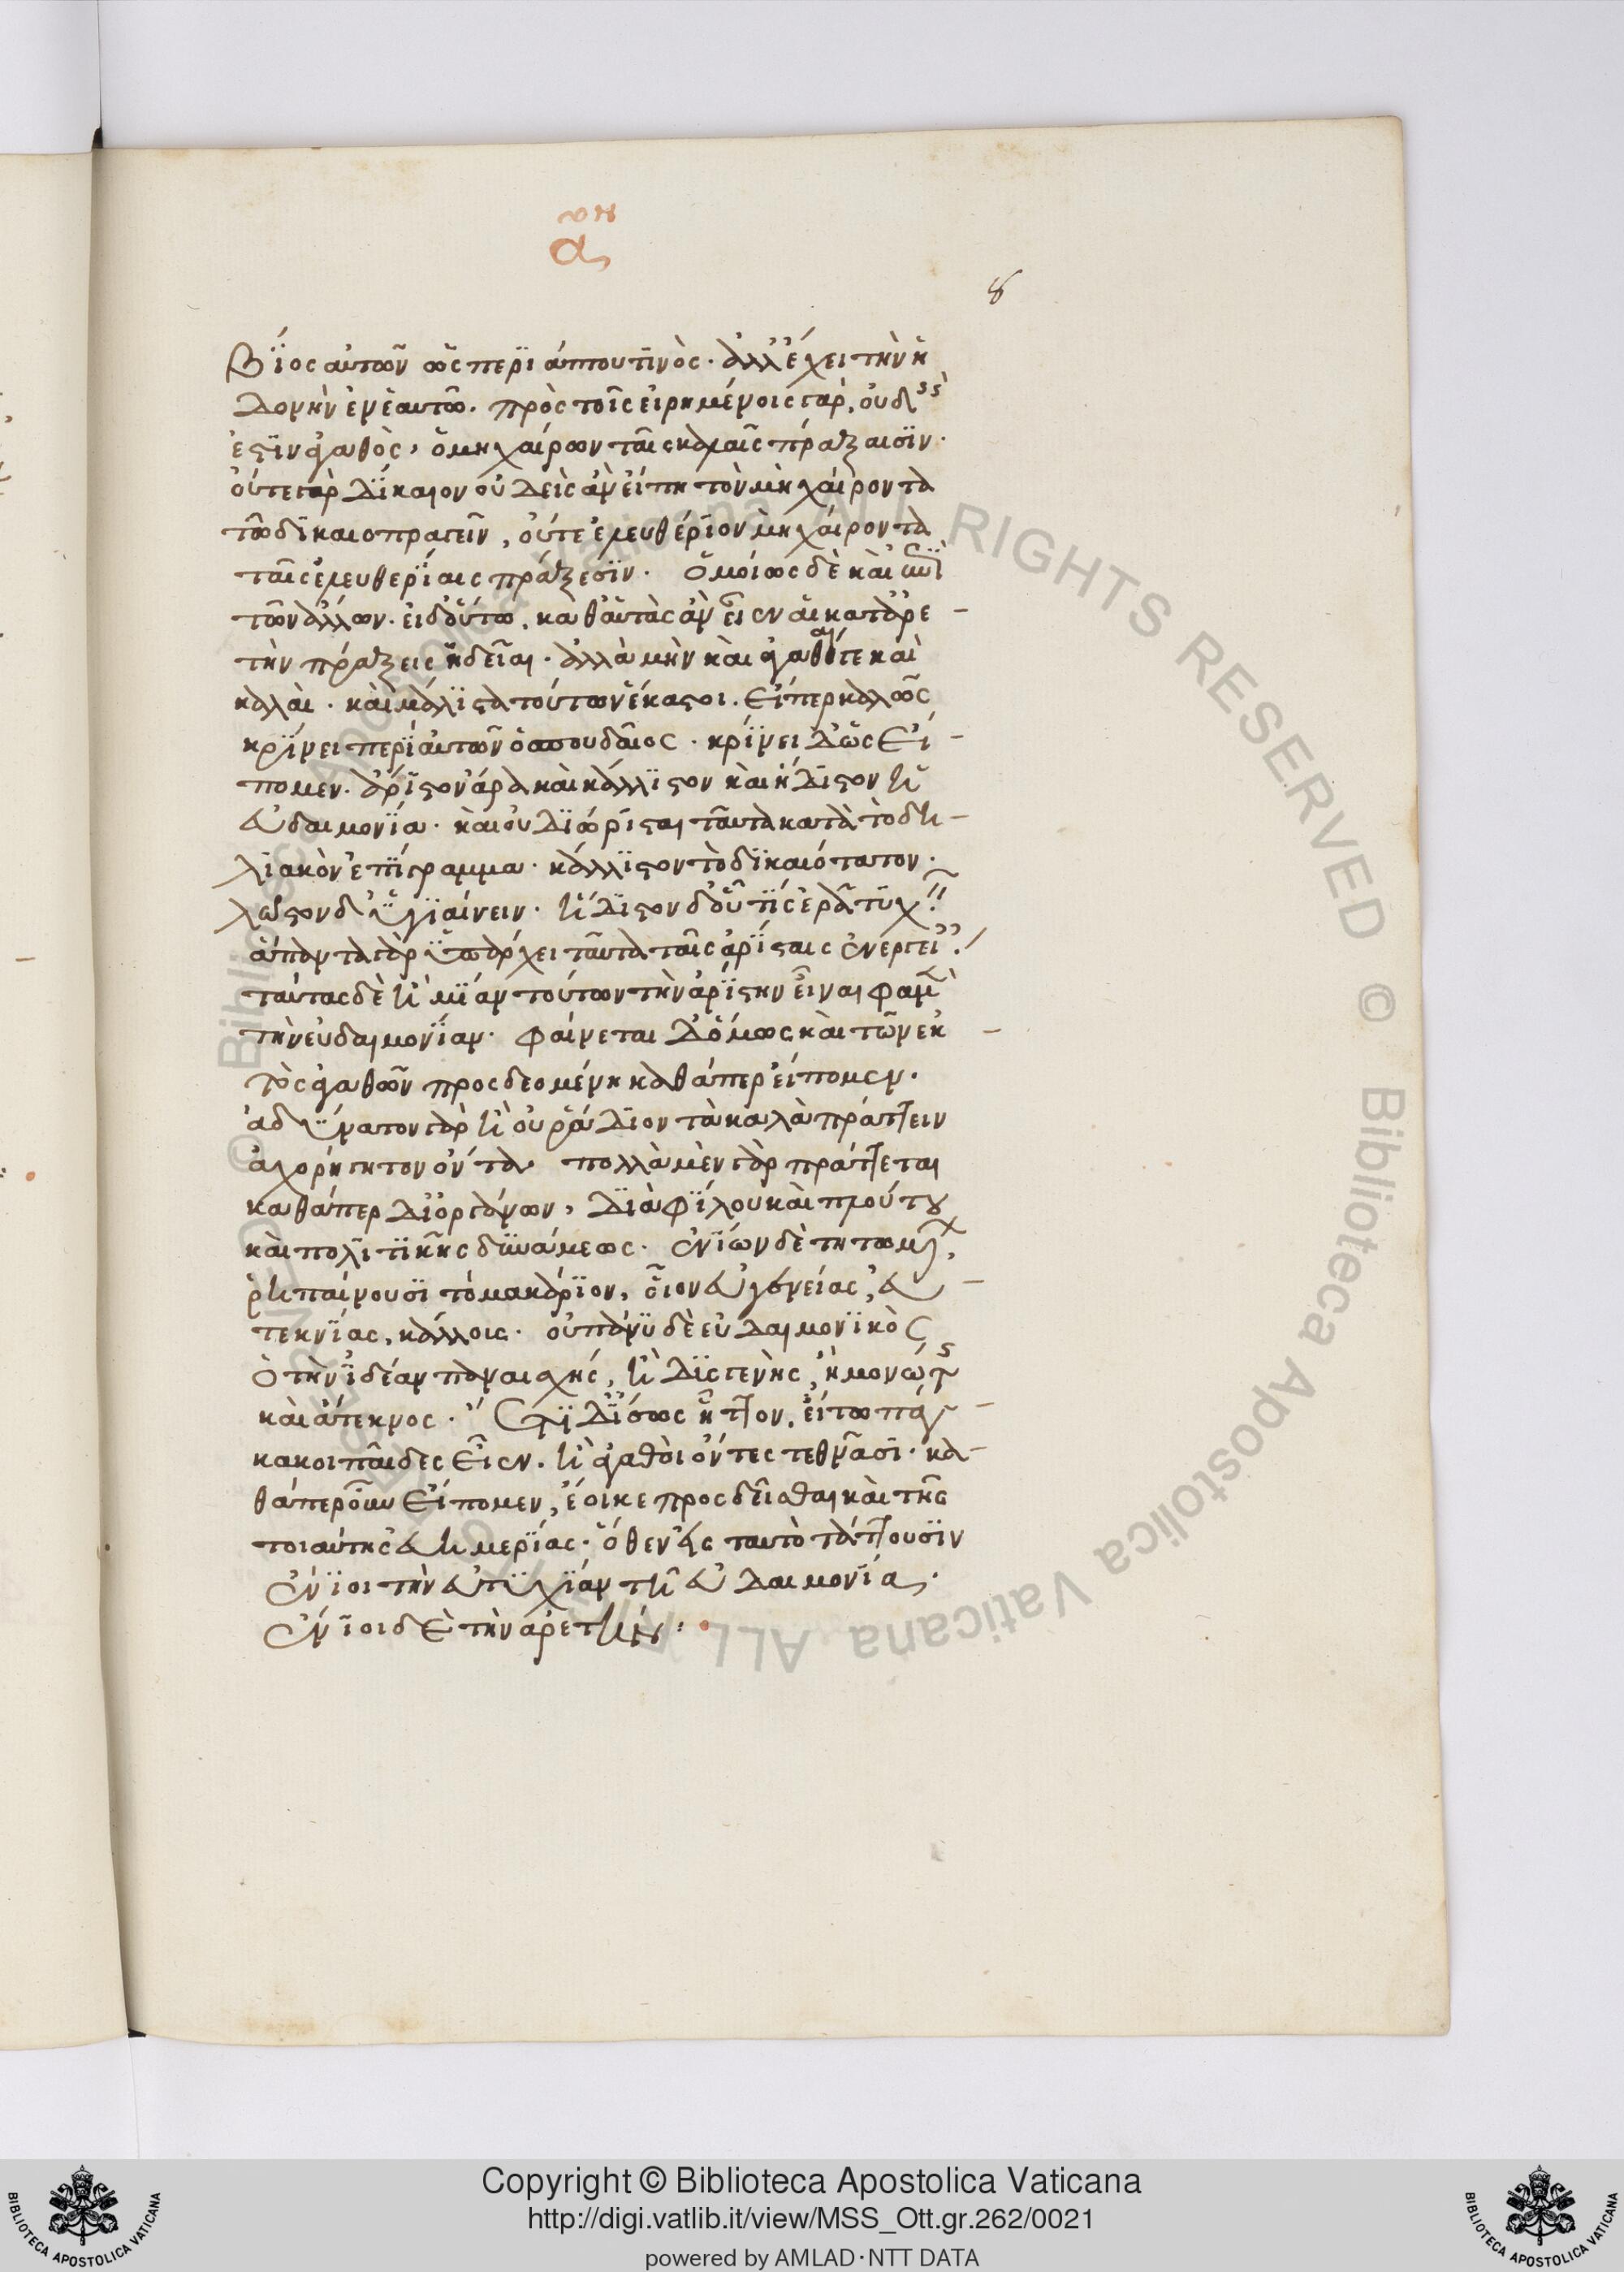 α
8
βίος αὐτῶν ὥσπερ περιάπτου τινὸς. ἀλλ' ἔχει τὴν ἡ
δονὴν ἐν ἑαυτῶ. πρὸς τοῖς εἰρημένοις γὰρ, οὐδ
ἐστὶν ἀγαθὸς, ὁ μὴ χαίρων ταῖς καλαῖς πράξαισιν.
οὔτε γὰρ δίκαιον οὐδεὶς ἂν εἴπη τὸν μὴ χαίροντα
τῶ δικαιοπραγεῖν, οὔτε ἐλευθέριον μὴ χαίροντα
ταῖς ἐλευθερίαις πράξεσιν. ὁμοίως δὲ καὶ ἐπὶ
τῶν ἄλλων. εἰ δ' οὕτω, καθ' αὑτὰς ἂν εἶεν αἱ κατ' ἀρε
τὴν πράξεις ἡδεῖαι. ἀλλὰ μὴν καὶ ἀγαθαί τε καὶ
καλαὶ. καὶ μάλιστα τούτων ἕκαστοι. εἴπερ καλῶς
κρίνει περὶ αὐτῶν ὁ σπουδαῖος. κρίνει δ' ὡς εἴ
πομεν. ἄριστον ἄρα καὶ κάλλιστον καὶ ἥδιστον ἡ
εὐδαιμονία. καὶ οὐ διώρισται ταῦτα κατὰ τὸ δη
λιακὸν ἐπίγραμμα. κάλλιστον τὸ δικαιότατον.
λῷστον δ' ὑγιαίνειν. ἥδιστον δ' οὗ τίς ἐρᾶ τυχ
ἅπαντα γὰρ ὑπάρχει ταῦτα ταῖς ἀρίσταις ἐνεργεί
ταύτας δὲ ἢ μίαν τούτων τὴν ἀρίστην εἶναι φαμὲν
τὴν εὐδαιμονίαν. φαίνεται δ' ὅμως καὶ τῶν ἐκ
τὸς ἀγαθῶν προσδεομένη καθάπερ εἴπομεν.
ἀδύνατον γὰρ ἢ οὐ ῥάδιον τὰ καλὰ πράττειν
ἀχορήγητον ὄντα. πολλὰ μὲν γὰρ πράττεται
καθάπερ δι' ὀργάνων, διὰ φίλου καὶ πλούτου
καὶ πολιτικῆς δυνάμεως. ἐνίων δὲ τητώμ,
ῥηπαίνουσι τὸ μακάριον, οἷον εὐγενείας, εὐ
τεκνίας, κάλλοις. οὐ πάνυ δὲ εὐδαιμονικὸς
ὁ τὴν ἰδέαν παναισχής, ἢ δισγενὴς, ἢ μονώτης
καὶ ἄτεκνος. ἔτι δ' ἴσως ἧττον, εἴ τω πάγ
κακοι παῖδες εἶεν. ἢ ἀγαθοὶ ὄντες τεθνᾶσι. κα
θάπερ οὖν εἴπομεν, ἔοικε προσδεῖσθαι καὶ τῆς
τοιαύτης εὐημερίας. ὅθεν εἰς ταυτὸ τάττουσιν
ἔνιοι τὴν εὐτυχίαν τῇ εὐδαιμονίᾳ.
ἔνιοι δὲ τὴν ἀρετὴν:
Copyright © Biblioteca Apostolica Vaticana
http://digi.vatlib.it/view/MSS_Ott.gr.262/0021
powered by AMLAD·NTT DATA
BIBLIOTECA APOSTOLICA VATICANA
BIBLIOTECA APOSTOLICA VATICANA
© Biblioteca Apostolica Vaticana ALL RIGHTS RESERVED © Biblioteca Apostolica Vaticana ALL RIGHTS RESERVED